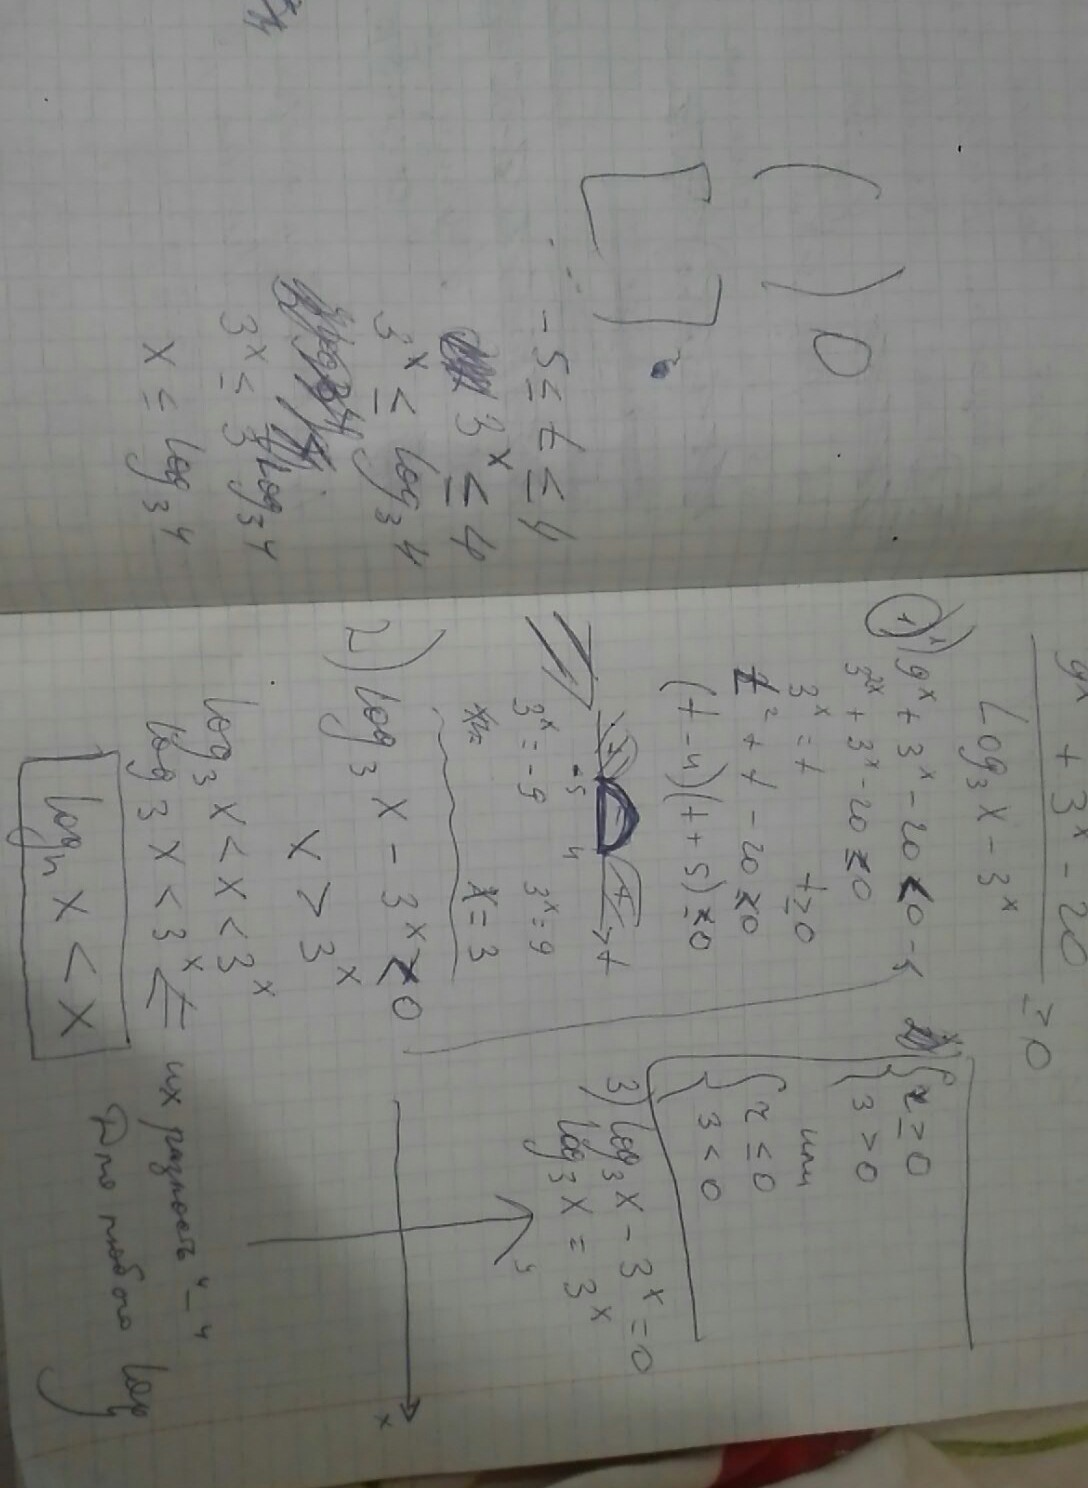 9ˣ + 3ˣ - 20
Log₃ x - 3ˣ
≥ 0
1) 9ˣ + 3ˣ - 20 ≤ 0
3²ˣ + 3ˣ - 20 ≤ 0
3ˣ = t t ≥ 0
t² + t - 20 ≤ 0
(t - 4)(t + 5) ≤ 0
+ + t
-5 4
3ˣ = -9 3ˣ = 9
x = 3
2) log₃ x - 3ˣ < 0
x > 3ˣ
log₃ x < x < 3ˣ
log₃ x < 3ˣ ⇒ их разность "-"
logₙ x < x Для любого log
{ч ≥ 0
{з > 0
или
{ч ≤ 0
{з < 0
3) log₃ x - 3ˣ = 0
log₃ x = 3ˣ
y
x
( ) 0
[ ] •
-5 ≤ t ≤ 4
3ˣ ≤ 4
3ˣ ≤ log₃ 4
3ˣ ≤ 3^log₃ 4
x ≤ log₃ 4